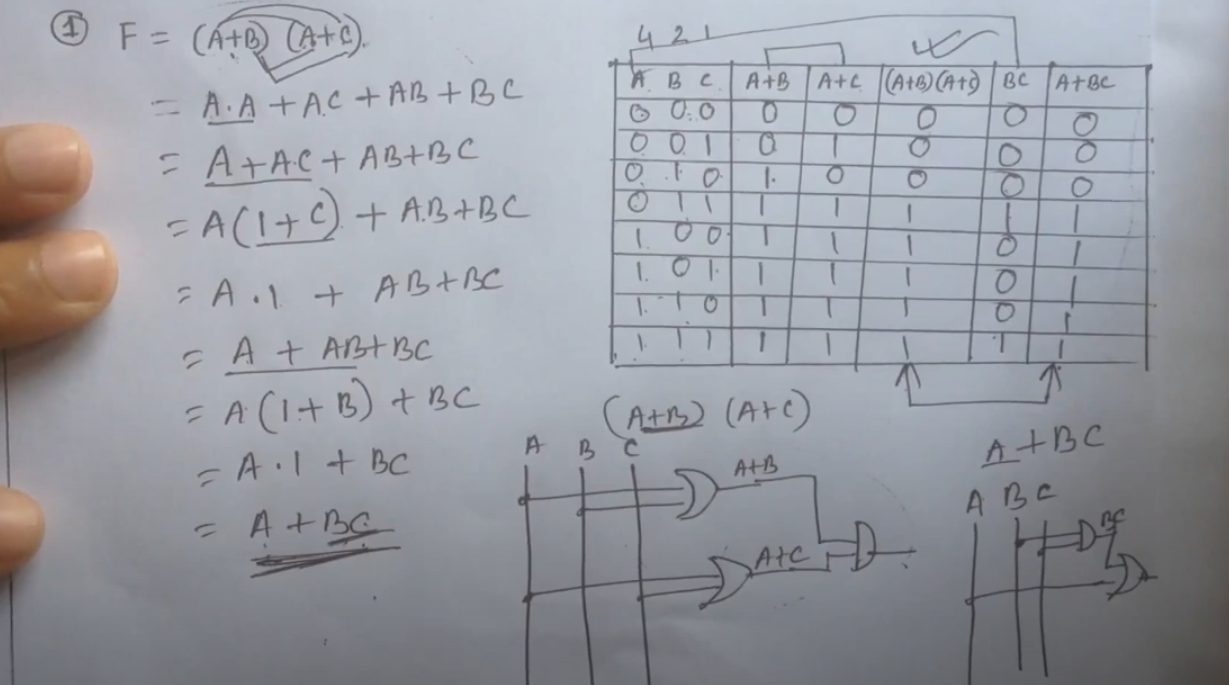 ① F = (A+B) (A+C).
= A.A + AC + AB + BC
= A + A.C + AB + BC
= A(1+C) + A.B + BC
= A.1 + AB + BC
= A + AB + BC
= A(1+B) + BC
= A.1 + BC
= A + BC
4 2 1
A B C A+B A+C (A+B)(A+C) BC A+BC
0 0 0 0 0 0 0 0
0 0 1 0 1 0 0 0
0 1 0 1 0 0 0 0
0 1 1 1 1 1 1 1
1 0 0 1 1 1 0 1
1 0 1 1 1 1 0 1
1 1 0 1 1 1 0 1
1 1 1 1 1 1 1 1
(A+B) (A+C)
A B C
A+B
A+C
A+BC
A B C
BC